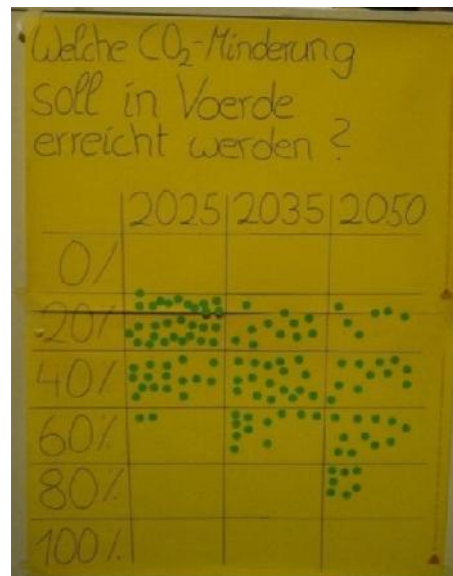 Welche CO₂-Minderung
soll in Voerde
erreicht werden ?
2025 2035 2050
0%
20%
40%
60%
80%
100%